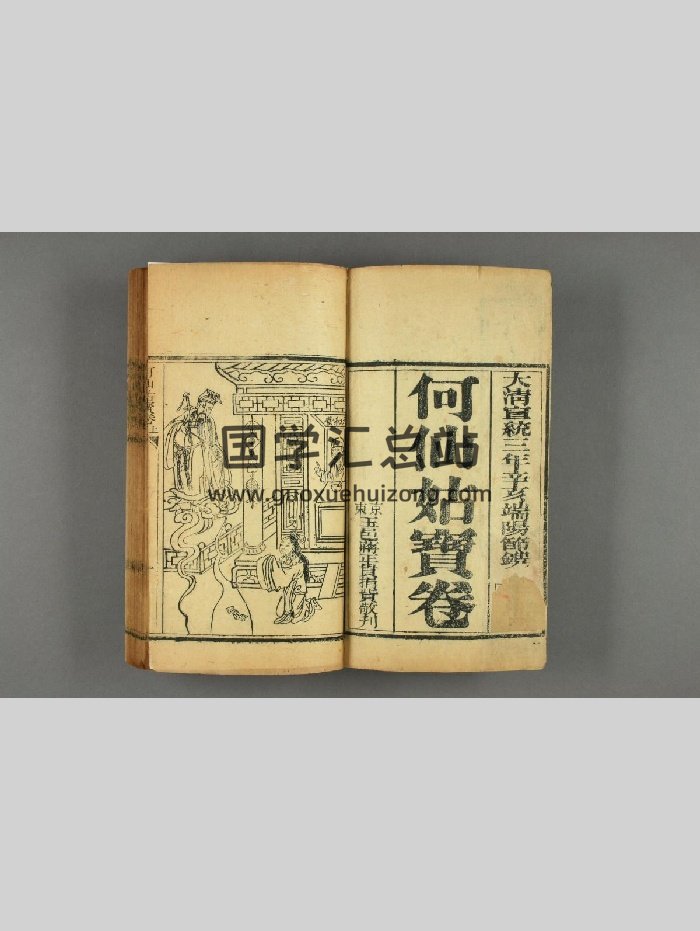 大清宣統三年辛亥端陽節鐫
何仙姑寶卷
京東玉邑蔣正貞捐資敬刊
国学汇总站
www.guoxuehuizong.com